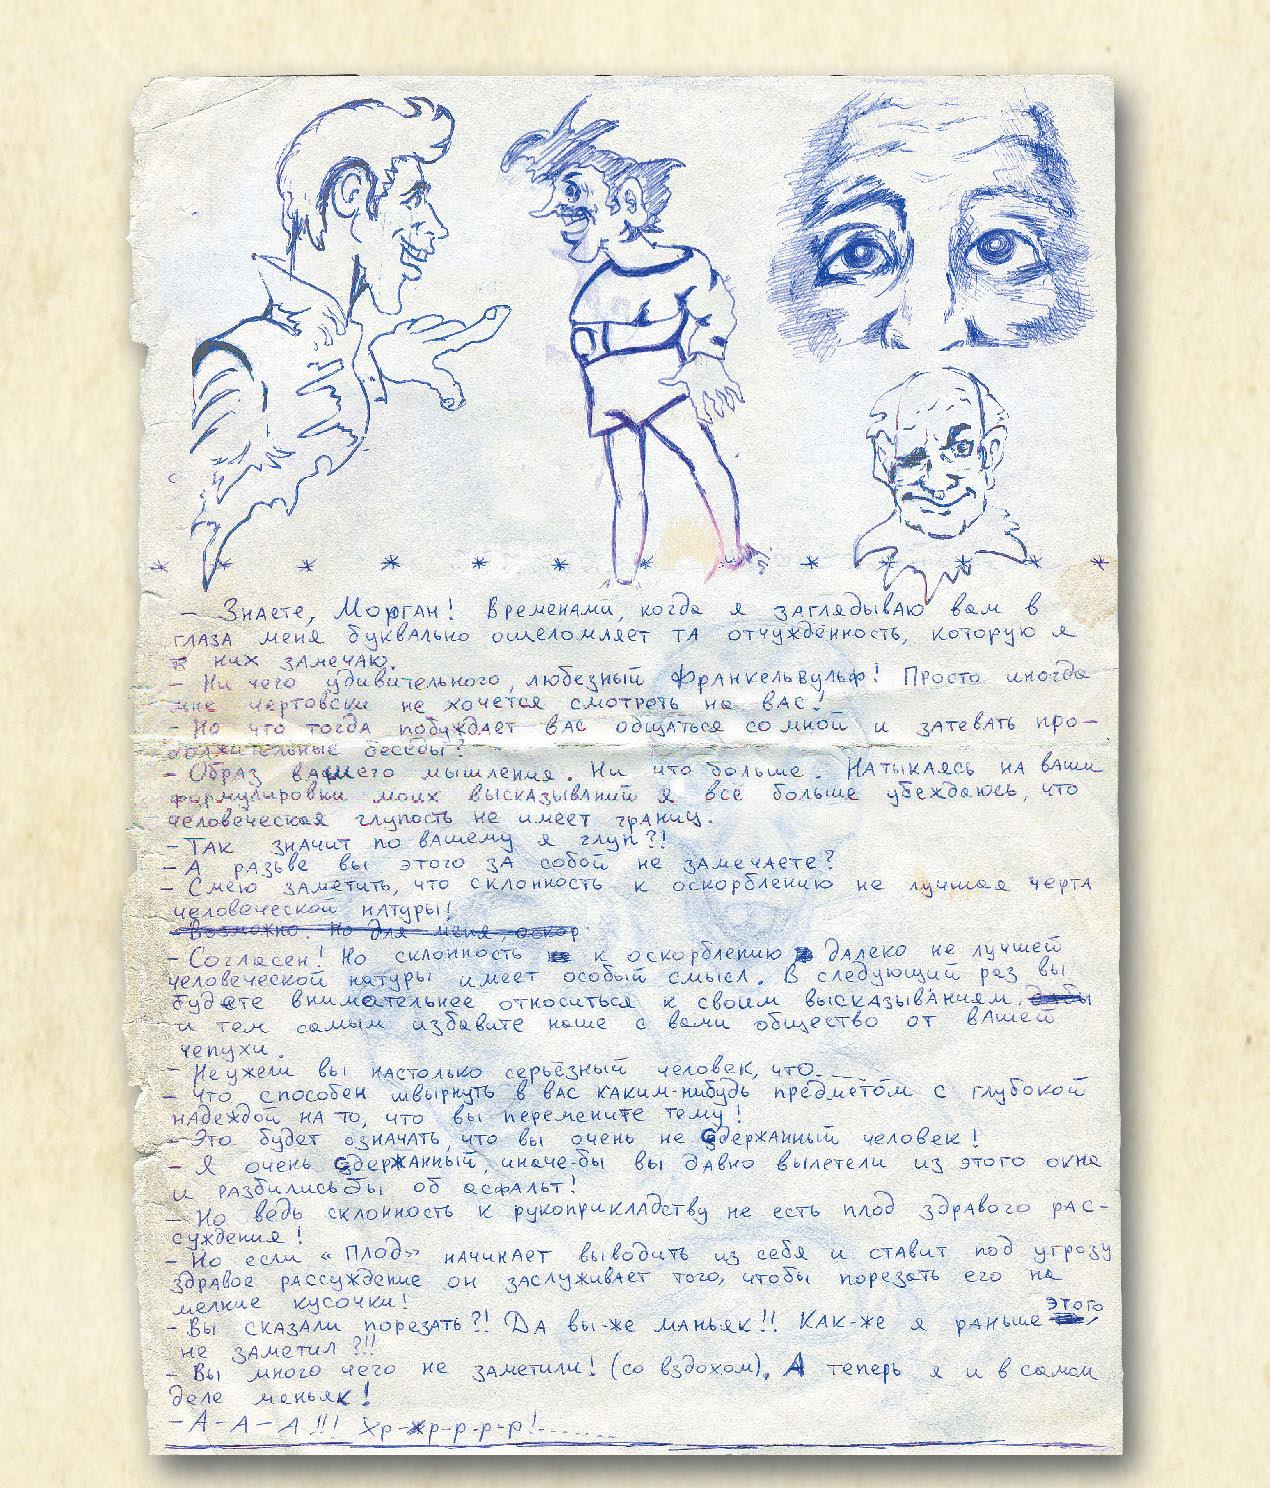 * * * * * * * * * * * *
– Знаете, Морган! Временами, когда я заглядываю вам в
глаза меня буквально ошеломляет та отчужденность, которую я
в них замечаю.
– Ни чего удивительного, любезный Франкельвульф! Просто иногда
мне чертовски не хочется смотреть на вас!
– Но что тогда побуждает вас общаться со мной и затевать про-
должительные беседы?
– Образ вашего мышления. Ни что больше. Натыкаясь на ваши
формулировки моих высказываний я всё больше убеждаюсь, что
человеческая глупость не имеет границ.
– Так значит по вашему я глуп?!
– А разьве вы этого за собой не замечаете?
– Смею заметить, что склонность к оскорблению не лучшая черта
человеческой натуры!
– Возможно. Но для меня, оскор
– Согласен! Но склонность к оскорблению далеко не лучшей
человеческой натуры имеет особый смысл. В следующий раз вы
будете внимательнее относиться к своим высказываниям, дабы
и тем самым избавите наше с вами общество от вашей
чепухи.
– Неужели вы настолько серьёзный человек, что.....
– Что способен швырнуть в вас каким-нибудь предметом с глубокой
надеждой на то, что вы перемените тему!
– Это будет означать, что вы очень не сдержанный человек!
– Я очень сдержанный, иначе-бы вы давно вылетели из этого окна
и разбились бы об асфальт!
– Но ведь склонность к рукоприкладству не есть плод здравого рас-
суждения!
– Но если «плод» начинает выводить из себя и ставит под угрозу
здравое рассуждение он заслуживает того, чтобы порезать его на
мелкие кусочки!
– Вы сказали порезать?! Да вы-же маньяк!! Как-же я раньше этого
не заметил?!!
– Вы много чего не заметили! (со вздохом). А теперь я и в самом
деле маньяк!
– А – А – А – А!!! Хр-хр-р-р-р!.......